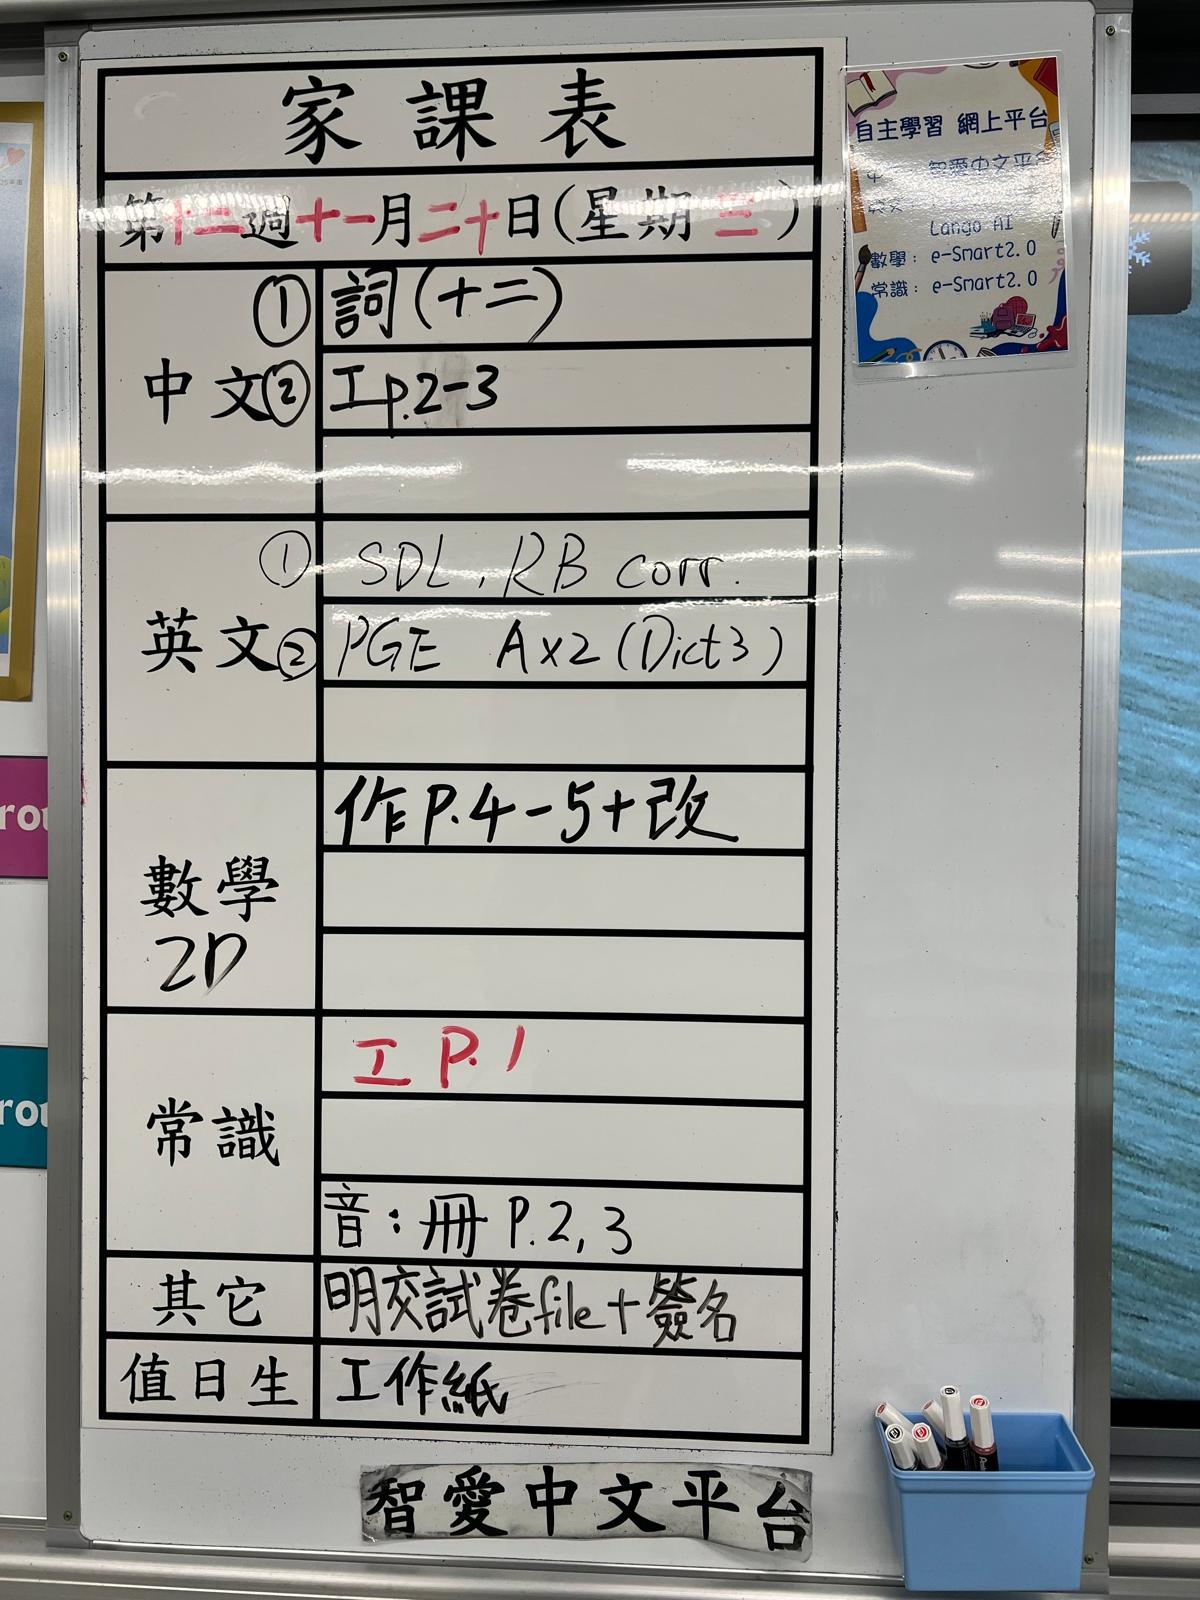 家課表
第十二週十一月二十日(星期三)
中文
① 詞(十二)
② 工p.2-3
英文
① SDL, RB corr.
② PGE A×2 (Dict3)
數學
2D
作P.4-5+改
常識
工 P.1
音：冊 P.2, 3
其它 明交試卷file+簽名
值日生 工作紙
智愛中文平台
自主學習 網上平台
智愛中文平台
英文
Lango AI
數學：e-Smart2.0
常識：e-Smart2.0
rou
rou